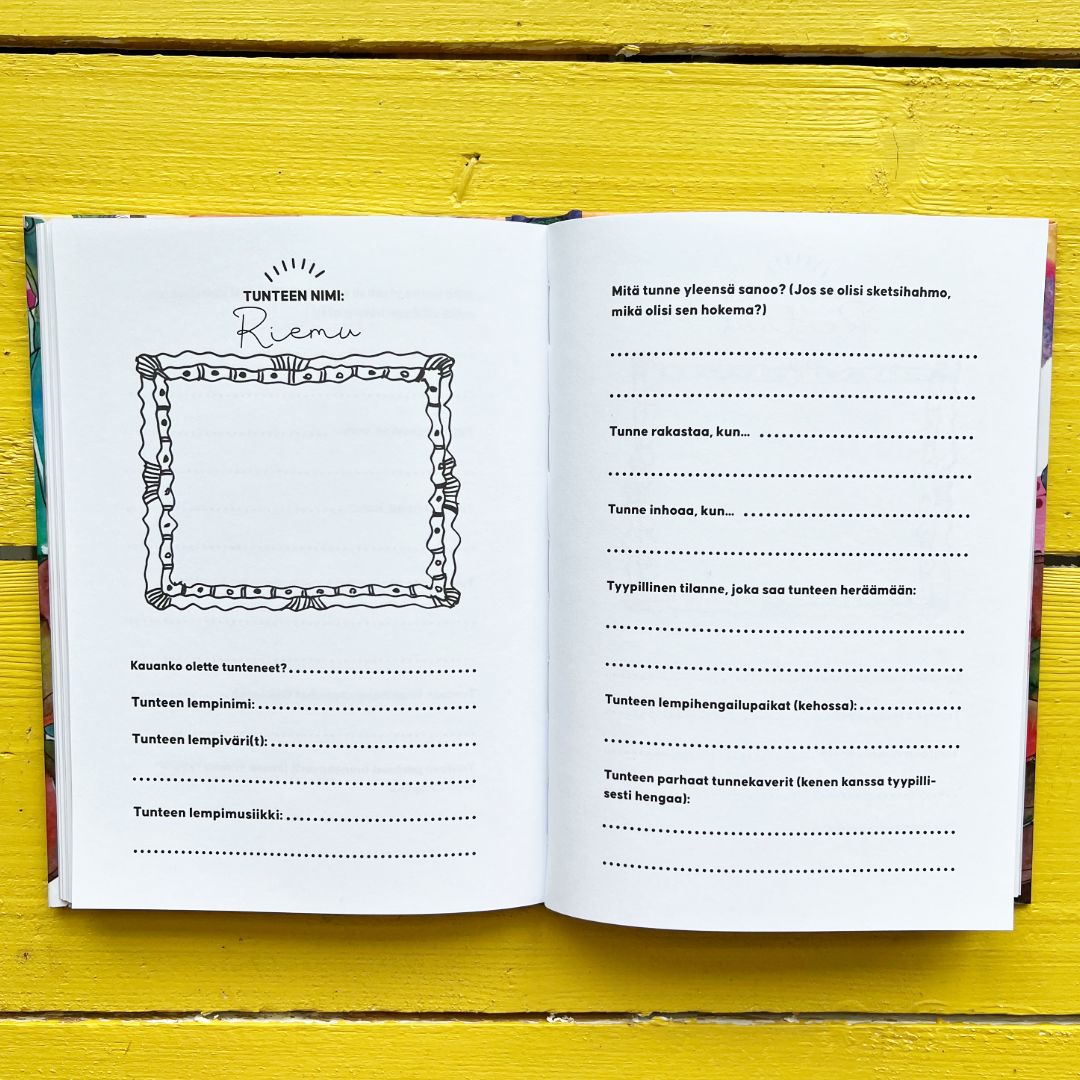 TUNTEEN NIMI:
Riemu
Kauanko olette tunteneet?
Tunteen lempinimi:
Tunteen lempiväri(t):
Tunteen lempimusiikki:
Mitä tunne yleensä sanoo? (Jos se olisi sketsihahmo,
mikä olisi sen hokema?)
Tunne rakastaa, kun...
Tunne inhoaa, kun...
Tyypillinen tilanne, joka saa tunteen heräämään:
Tunteen lempihengailupaikat (kehossa):
Tunteen parhaat tunnekaverit (kenen kanssa tyypilli-
sesti hengaa):